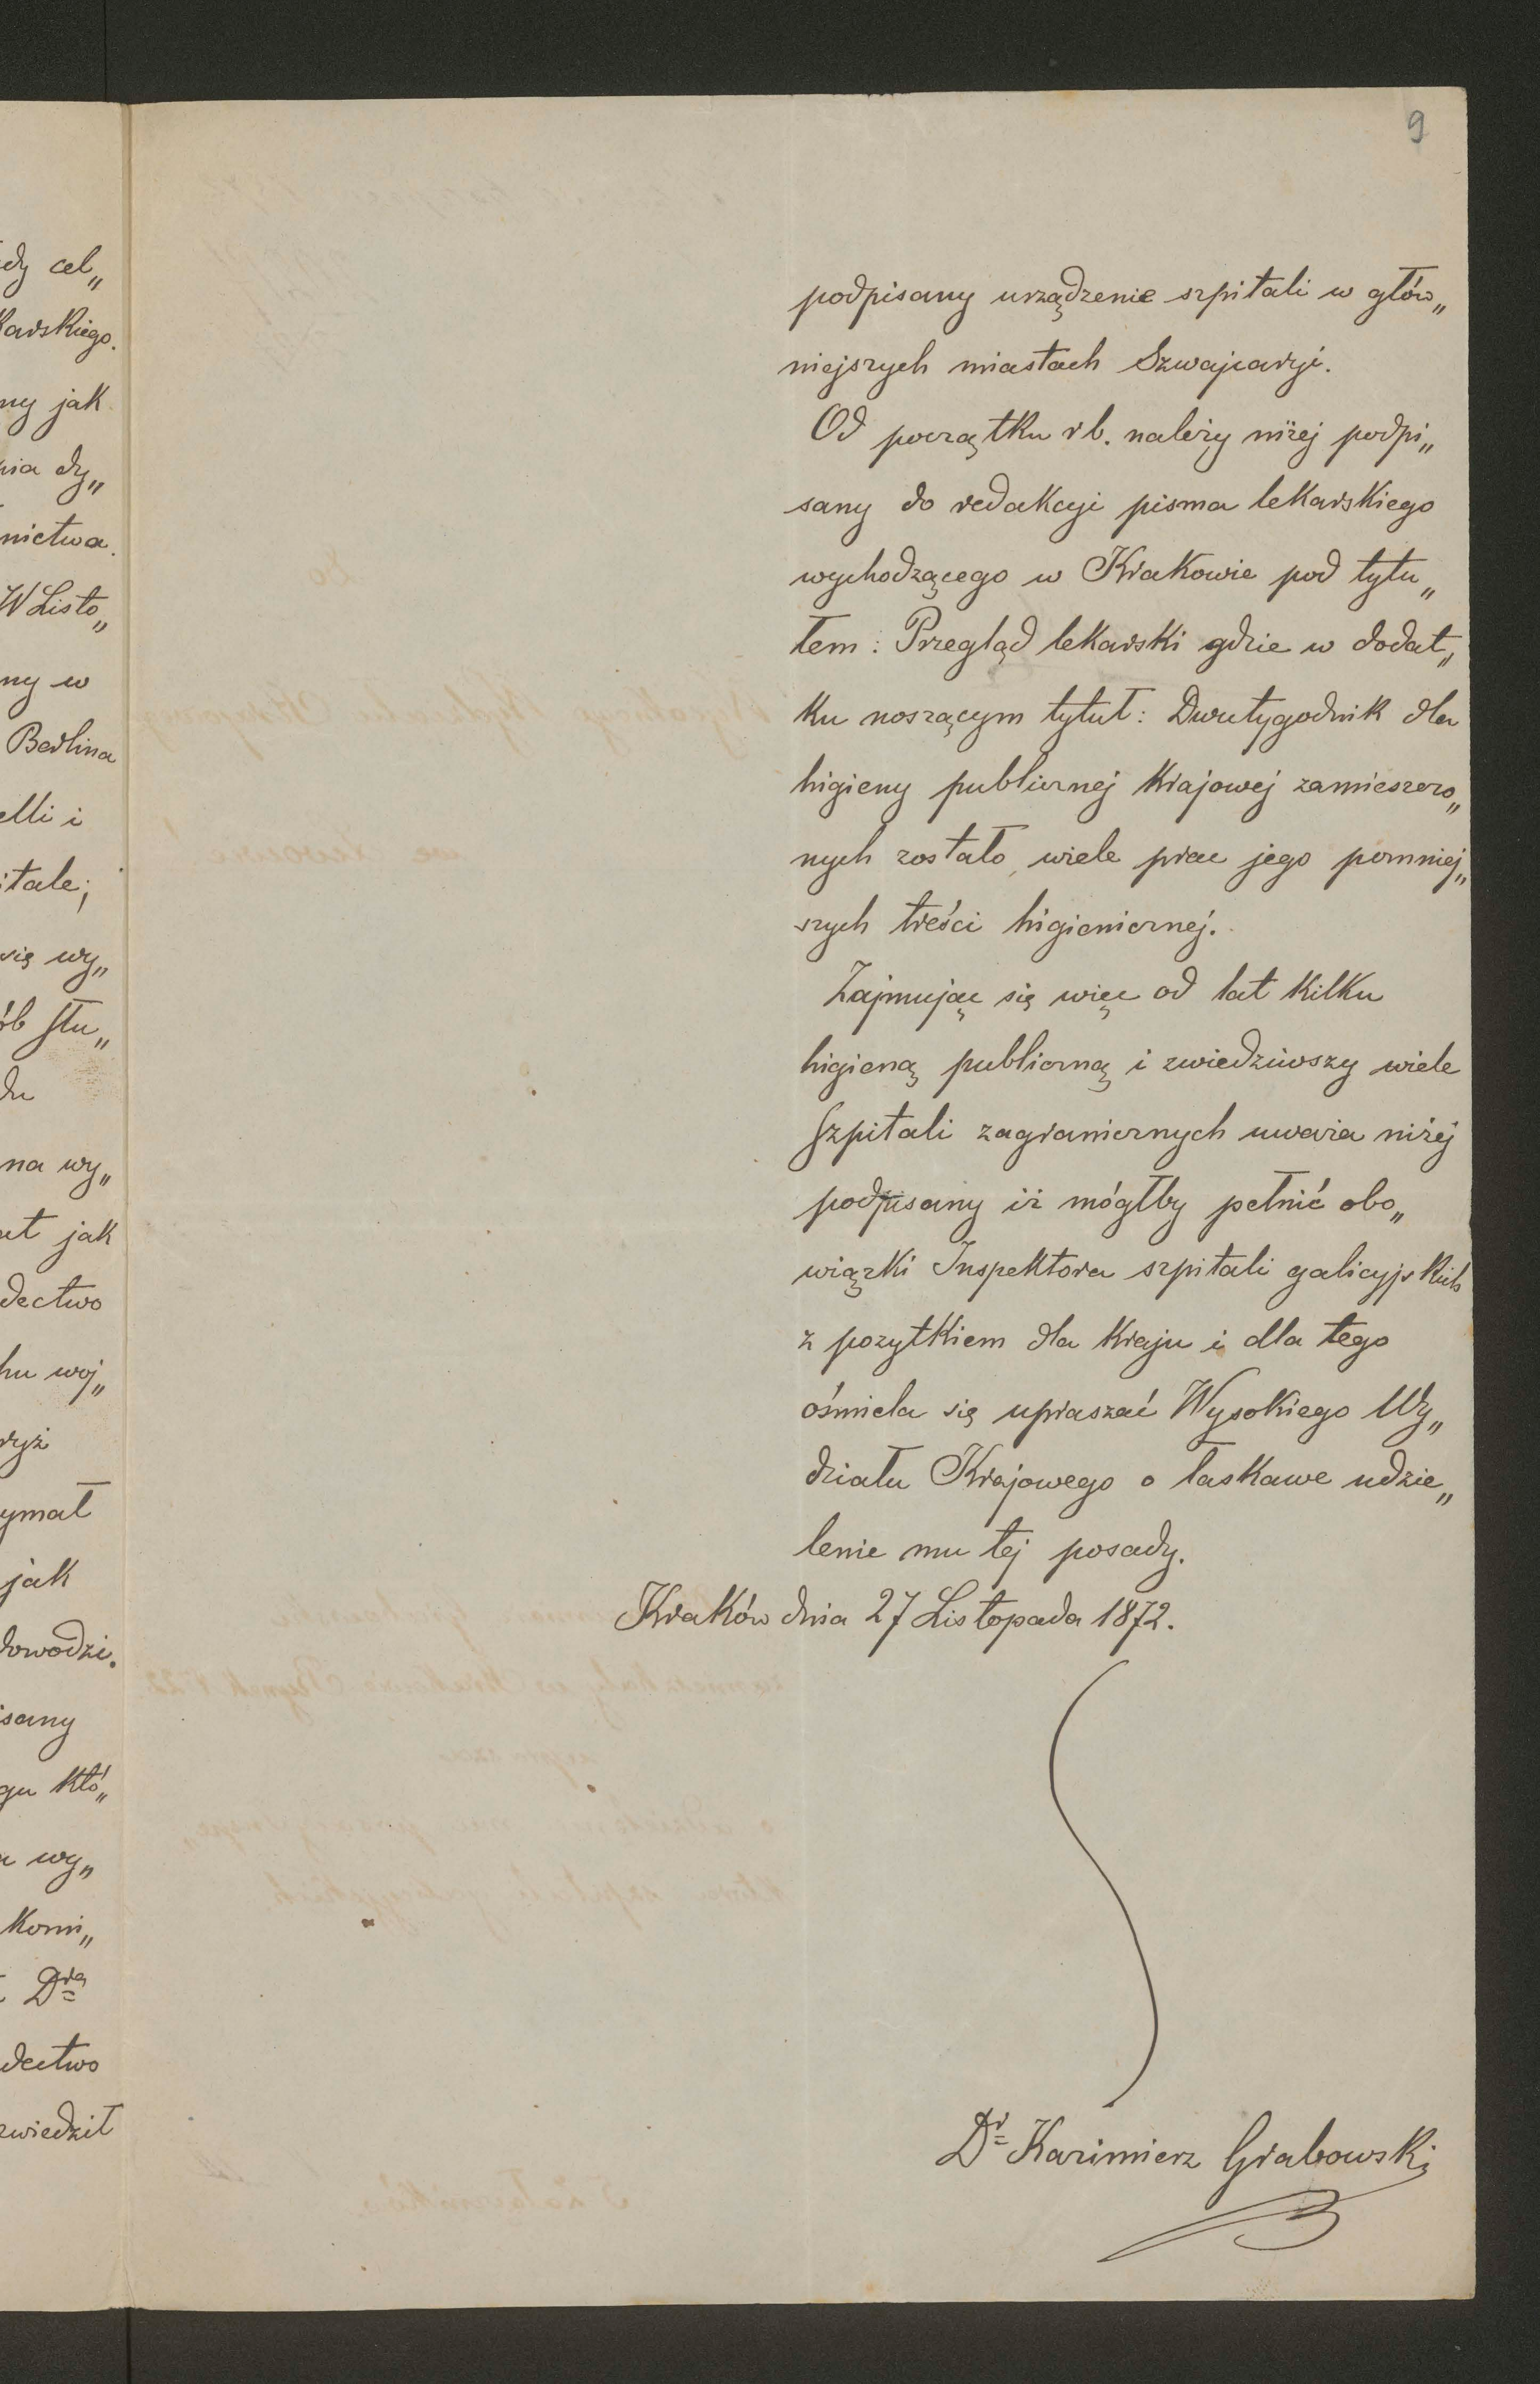 9
dy cel„
karskiego.
ny jak
nia dy„
nictwa.
W Listo„
ny w
Berlina
elli i
itale;
się wy„
ób słu„
du
na wy„
et jak
dectwo
hu woj„
ryż
ymał
jak
dowodzi.
isany
gu któ„
a wy„
komi„
Dra
dectwo
zwiedził
podpisany urządzenie szpitali w głów„
niejszych miastach Szwajcaryi.
Od początku rb. należy niżej podpi„
sany do redakcyi pisma lekarskiego
wychodzącego w Krakowie pod tytu„
łem: Przegląd lekarski gdzie w dodat„
ku noszącym tytuł: Dwutygodnik dla
higieny publicznej krajowej zamieszczo„
nych zostało wiele prac jego pomniej„
szych treści higienicznej.
Zajmując się więc od lat kilku
higieną publiczną i zwiedziwszy wiele
szpitali zagranicznych uważa niżej
podpisany iż mógłby pełnić obo„
wiązki Inspektora szpitali galicyjskich
z pożytkiem dla kraju i dla tego
ośmiela się upraszać Wysokiego Wy„
działu Krajowego o łaskawe udzie„
lenie mu tej posady.
Kraków dnia 27 Listopada 1872.
Dr Kazimierz Grabowski